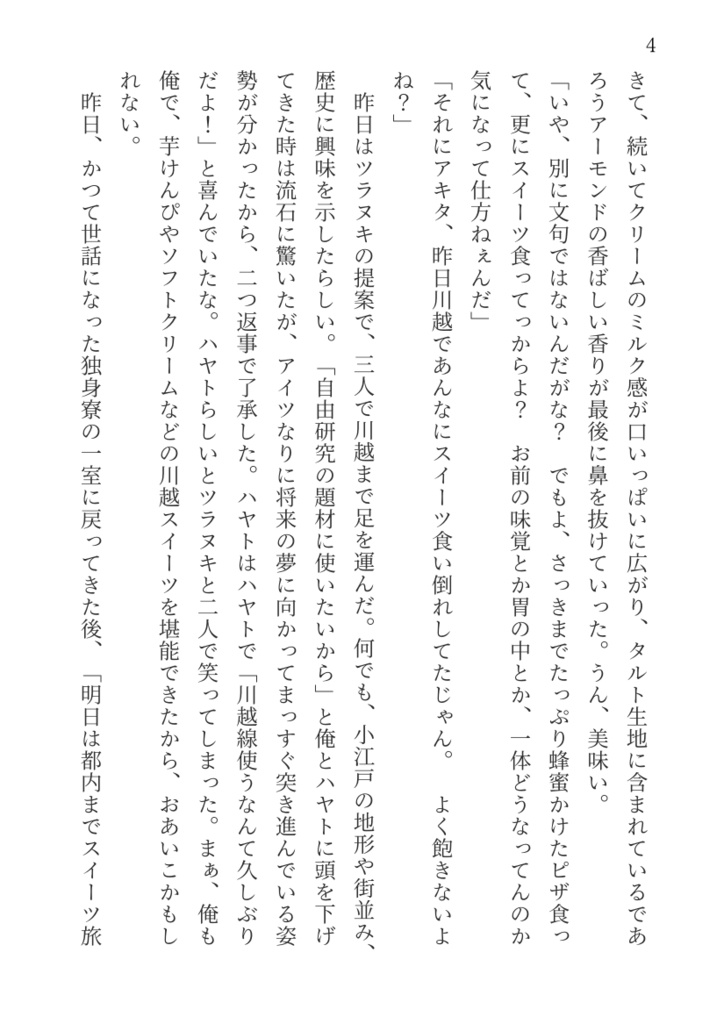 4
きて、続いてクリームのミルク感が口いっぱいに広がり、タルト生地に含まれているであ
ろうアーモンドの香ばしい香りが最後に鼻を抜けていった。うん、美味い。
「いや、別に文句ではないんだがな？　でもよ、さっきまでたっぷり蜂蜜かけたピザ食っ
て、更にスイーツ食ってっからよ？　お前の味覚とか胃の中とか、一体どうなってんのか
気になって仕方ねぇんだ」
「それにアキタ、昨日川越であんなにスイーツ食い倒れしてたじゃん。　よく飽きないよ
ね？」
　昨日はツラヌキの提案で、三人で川越まで足を運んだ。何でも、小江戸の地形や街並み、
歴史に興味を示したらしい。「自由研究の題材に使いたいから」と俺とハヤトに頭を下げ
てきた時は流石に驚いたが、アイツなりに将来の夢に向かってまっすぐ突き進んでいる姿
勢が分かったから、二つ返事で了承した。ハヤトはハヤトで「川越線使うなんて久しぶり
だよ！」と喜んでいたな。ハヤトらしいとツラヌキと二人で笑ってしまった。まぁ、俺も
俺で、芋けんぴやソフトクリームなどの川越スイーツを堪能できたから、おあいこかもし
れない。
　昨日、かつて世話になった独身寮の一室に戻ってきた後、「明日は都内までスイーツ旅